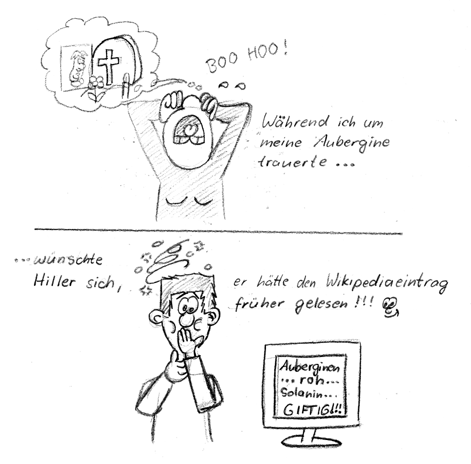 BOO HOO!
Während ich um
meine Aubergine
trauerte ...
...wünschte
Hiller sich,
er hätte den Wikipediaeintrag
früher gelesen!!!
Auberginen
...roh...
Solanin...
GIFTIG!!!